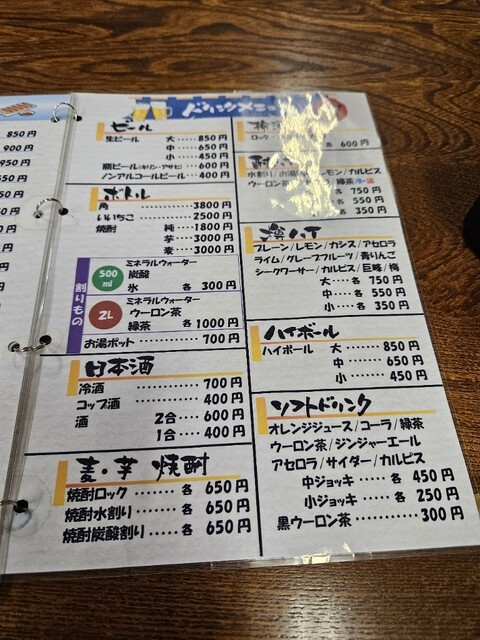 850円
900円
950円
550円
550円
ドリンクメニュー
ビール
生ビール 大‥850円
中‥650円
小‥450円
瓶ビール(キリン・アサヒ)‥600円
ノンアルコールビール‥400円
ボトル
角‥‥‥‥‥‥3800円
いいちこ‥‥‥‥2500円
焼酎 純‥1800円
芋‥3000円
麦‥3000円
割りもの
500ml
ミネラルウォーター
炭酸
氷 各 300円
2L
ミネラルウォーター
ウーロン茶
緑茶 各1000円
お湯ポット‥‥‥700円
日本酒
冷酒‥‥‥‥‥700円
コップ酒‥‥‥400円
酒 2合‥600円
1合‥400円
麦・芋 焼酎
焼酎ロック‥‥‥各 650円
焼酎水割り‥‥‥各 650円
焼酎炭酸割り‥‥各 650円
ロック
各 600円
酎
水割り/お湯 レモン/カルピス
ウーロン茶 緑茶
各 750円
各 550円
各 350円
酎ハイ
プレーン/レモン/カシス/アセロラ
ライム/グレープフルーツ/青りんご
シークワーサー/カルピス/巨峰/梅
大‥各 750円
中‥各 550円
小‥各 350円
ハイボール
ハイボール 大‥850円
中‥650円
小‥450円
ソフトドリンク
オレンジジュース/コーラ/緑茶
ウーロン茶/ジンジャーエール
アセロラ/サイダー/カルピス
中ジョッキ‥‥各 450円
小ジョッキ‥‥各 250円
黒ウーロン茶‥‥‥‥‥300円